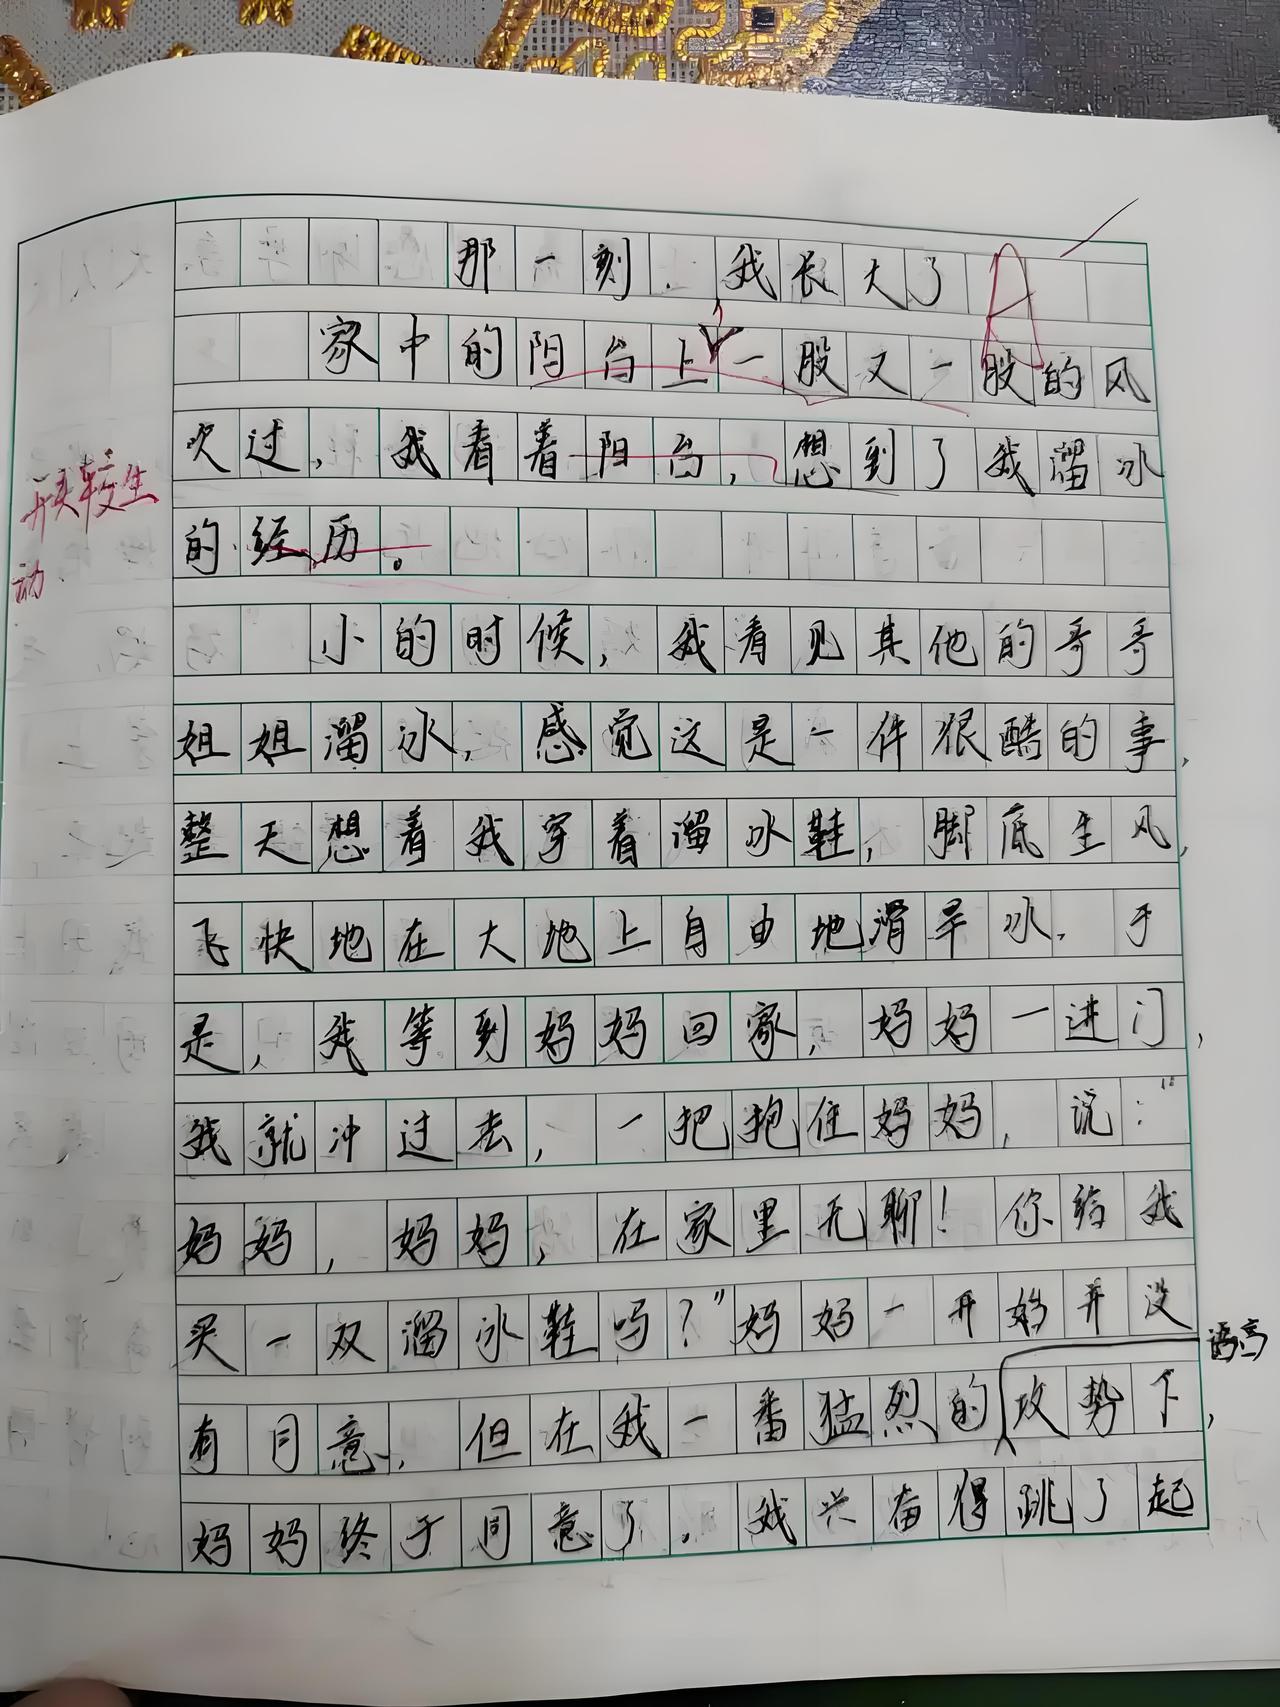 那一刻，我长大了
A
家中的阳台上，一股又一股的风
吹过，我看着阳台，想到了我溜冰
的经历。
开头较生
动
小的时候，我看见其他的哥哥
姐姐溜冰，感觉这是一件很酷的事，
整天想着我穿着溜冰鞋，脚底生风，
飞快地在大地上自由地滑旱冰。于
是，我等到妈妈回家，妈妈一进门，
我就冲过去，一把抱住妈妈，说：“
妈妈，妈妈，在家里无聊！你给我
买一双溜冰鞋吗？”妈妈一开始并没
有同意，但在我一番猛烈的攻势下，
妈妈终于同意了，我兴奋得跳了起